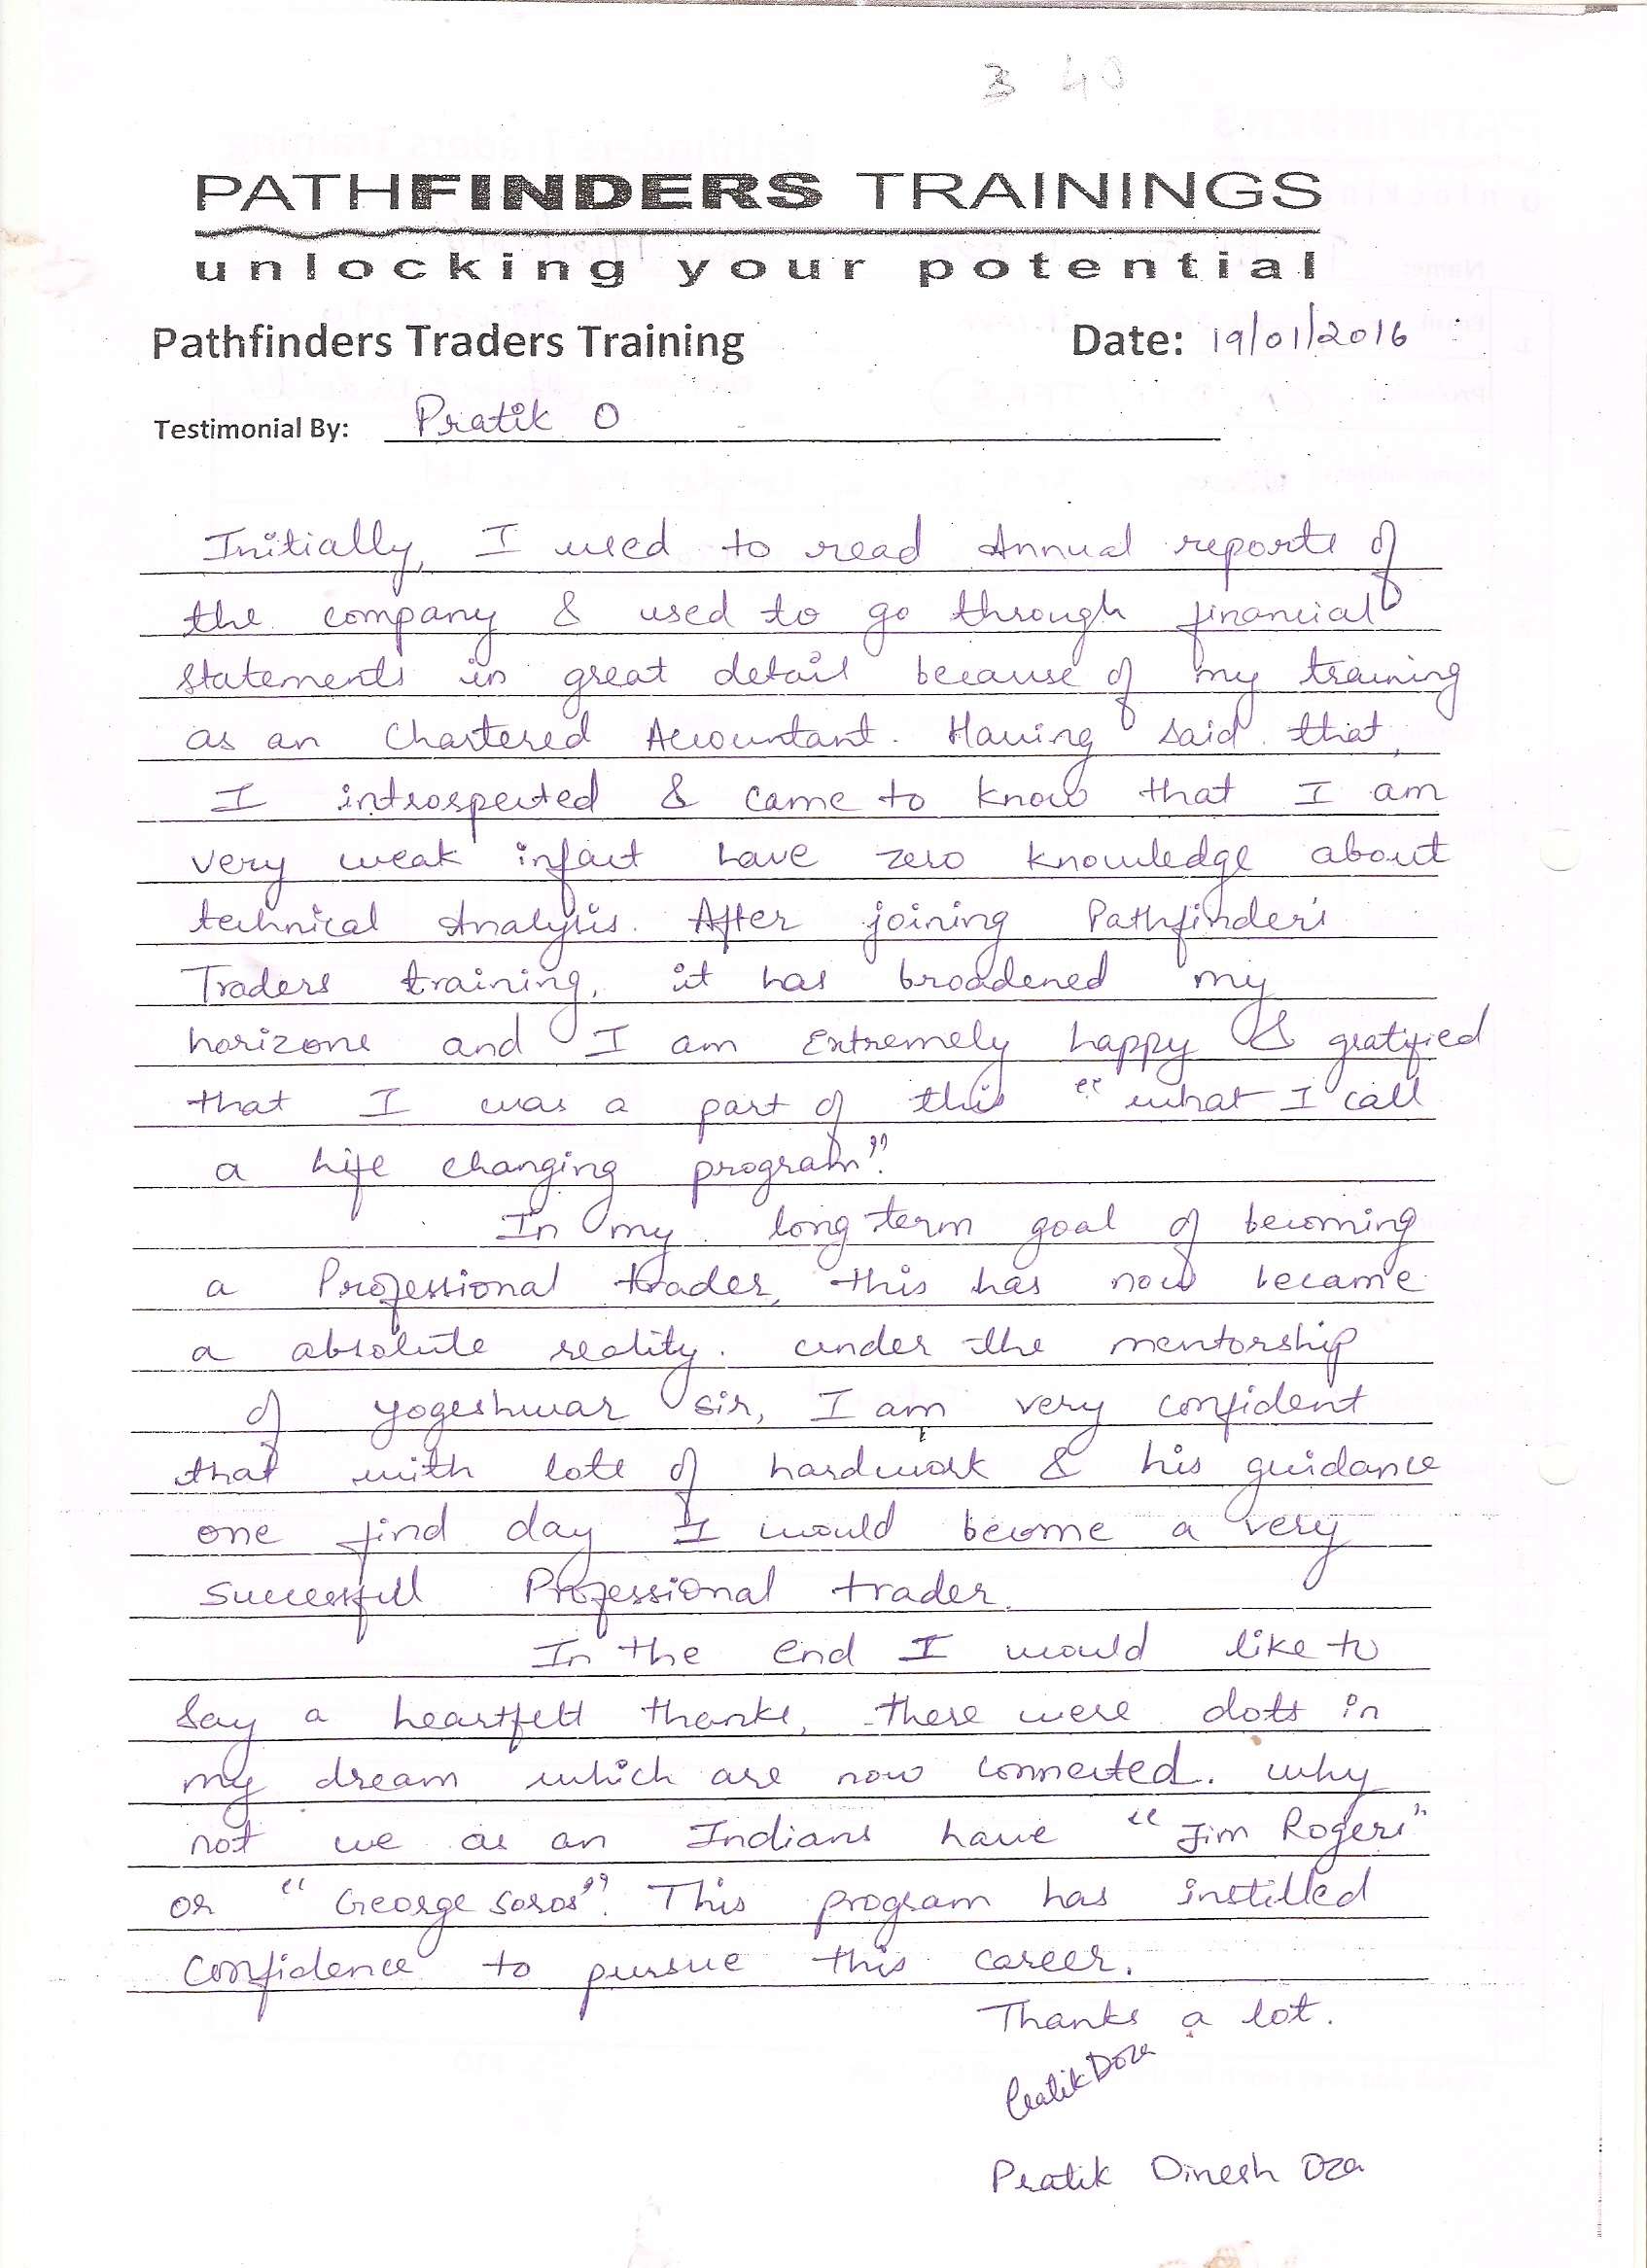 3 40
PATHFINDERS TRAININGS
unlocking your potential
Pathfinders Traders Training Date: 19/01/2016
Testimonial By: Pratik O
Initially, I used to read Annual reports of
the company & used to go through financial
statements in great detail because of my training
as an Chartered Accountant. Having said that,
I introspected & came to know that I am
very weak infact have zero knowledge about
technical Analysis. After joining Pathfinder's
Traders training, it has broadened my
horizons and I am Extremely happy & gratified
that I was a part of this "what I call
a life changing program".
In my long term goal of becoming
a Professional trader, this has now became
a absolute reality. under the mentorship
of yogeshwar sir, I am very confident
that with lots of hardwork & his guidance
one find day I would become a very
successfull Professional trader.
In the end I would like to
say a heartfelt thanks, there were dots in
my dream which are now connected. why
not we as an Indians have "Jim Rogers"
or "George Soros". This program has instilled
confidence to pursue this career.
Thanks a lot.
Pratik Dinesh Oza